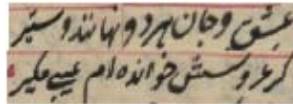 عشق و جان هر دو نهانند و ستیر
گر عروسش خوانده‌ام عیبی مگیر